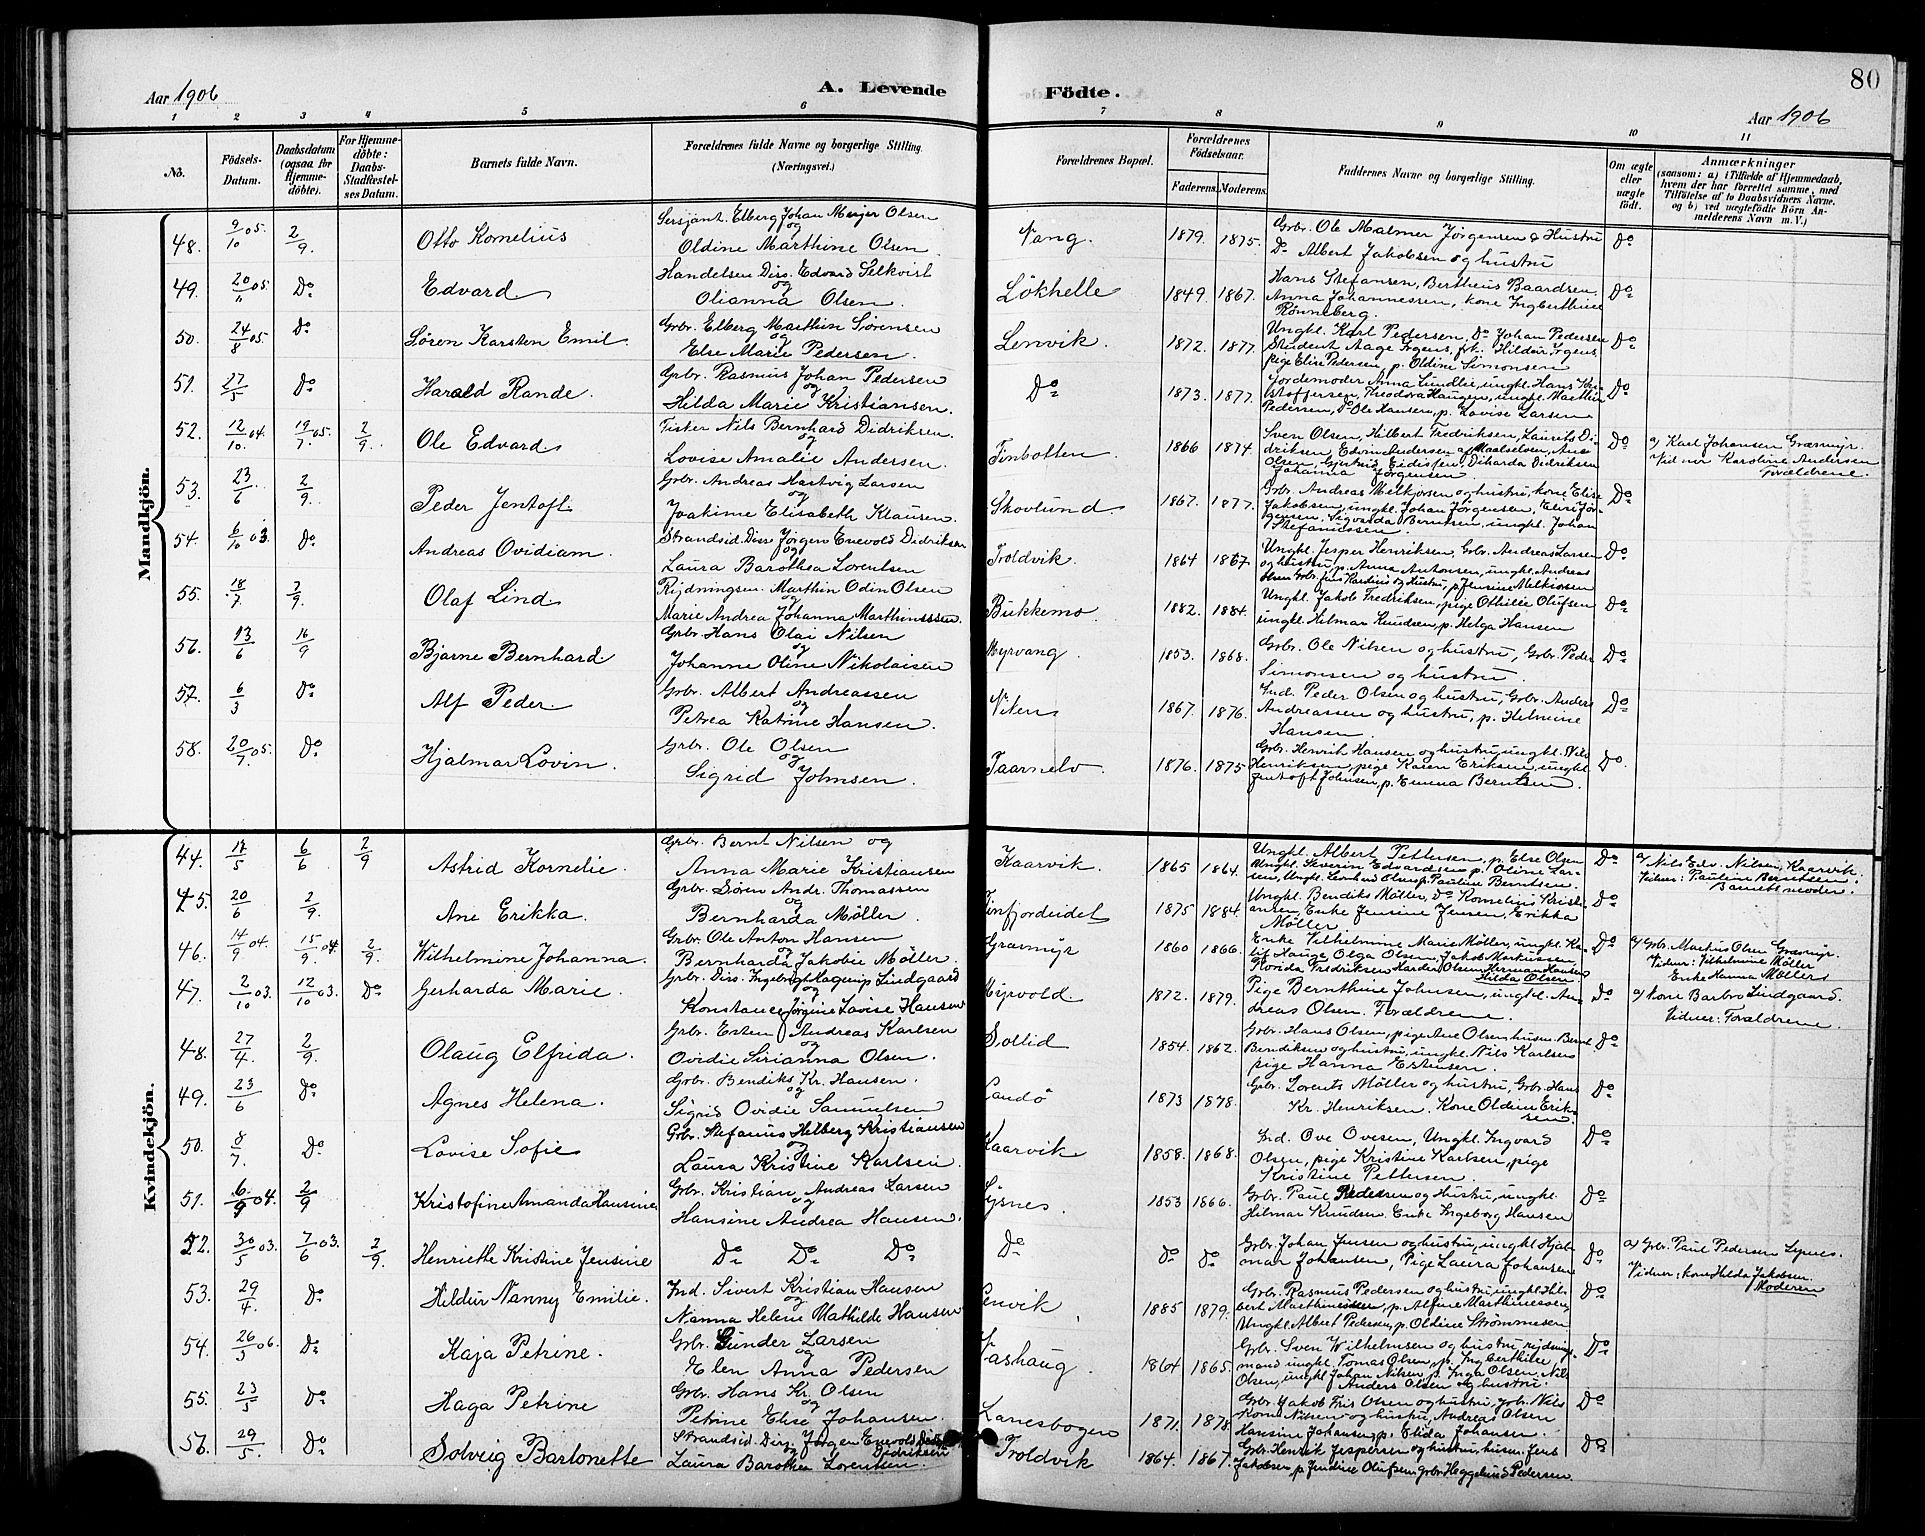 80
Aar 1906
A. Levende Födte.
Aar 1906
1 2 3 4 5 6 7 8 9 10 11
No.
Födsels-Datum.
Daabsdatum (ogsaa for Hjemmedöbte).
For Hjemmedöbte: Daabs-Stadfæstelses Datum.
Barnets fulde Navn.
Forældrenes fulde Navne og borgerlige Stilling. (Næringsvei.)
Forældrenes Bopæl.
Forældrenes Födselsaar.
Faderens. Moderens.
Faddernes Navne og borgerlige Stilling.
Om ægte eller uægte födt.
Anmærkninger
(saasom: a) i Tilfælde af Hjemmedaab, hvem der har forrettet samme, med Tilföielse af to Daabsvidners Navne, og b) ved uægtefödte Börn Anmelderens Navn m. V.)
Mandkjön.
48. 9/10 05. 2/9. Otto Kornelius
Sersjant. Elberg Johan Meyer Olsen
og
Oldine Marthine Olsen
Vang. 1879. 1875.
Grbr. Ole Malmer Jørgensen & Hustru
Do Albert Jakobsen og hustru
Do
49. 20/11 05. Do Edvard
Handelsen Dirs. Edvard Selkvist
og
Olianna Olsen.
Løkhelle 1849. 1867.
Hans Stefansen, Bertheus Baardsen,
Anna Johannessen, kone Ingberthine
Rønneberg.
Do
50. 24/8 05. Do Søren Karsten Emil.
Grbr. Elberg Marthin Sørensen
og
Else Marie Pedersen.
Lenvik. 1872. 1877.
Ungkl. Karl Pedersen, Do Johan Pedersen
Student Aage Irgens, frk. Hildur Irgens,
pige Elise Pedersen, p. Oldine Simonsen
Do
51. 27/5 Do Harald Rande.
Grbr. Rasmus Johan Pedersen
og
Hilda Marie Kristiansen.
Do 1873. 1877.
Jordemoder Anna Lundlie, ungkl. Hans Kri-
stoffersen, Theodora Haugen, ungkl. Marthin
Pedersen, Do Ole Hansen, p. Lovise Larsen
Do
52. 12/10 04. 19/7 05. 2/9. Ole Edvard
Fisker Nils Bernhard Didriksen.
og
Lovise Amalie Andersen.
Finbotten 1866 1874.
Sven Olsen, Hilbert Fredriksen, Laurits Di-
driksen, Edvin Pedersen af Maalselven, Ane
Olsen, Gjertrud Eidissen, Diharda Didriksen
Johanna Jørgensen.
Do
a) Karl Johansen Græsmyr.
Vidner Karoline Andersen
Forældrene.
53. 23/6 2/9 Peder Jentoft.
Grbr. Andreas Hartvig Larsen
og
Joakime Elisabeth Klausen.
Skovlund 1867. 1877.
Grbr. Andreas Melkjorsen og hustru, kone Elise
Jakobsen, ungkl. Johan Jørgensen, Elise Jør-
gensen, Sigvarda Berntsen, ungkl. Johan
Stefanussen.
Do
54. 6/10 03. Do Andreas Ovidiam.
Strandsid. Dirs Jørgen Enevold Didriksen
og
Laura Barothea Lorentsen
Troldvik. 1864 1867
Ungkl. Jesper Henriksen, Grbr. Andreas Larsen
og hustru, p. Anna Antonsen, ungkl. Andreas
Olsen Grbr. Jens Hardius og Hustru, p. Jensine Melkiorsen
Do
55. 18/7. 2/9. Olaf Lind
Rydningsm. Marthin Odin Olsen
og
Marie Andrea Johanna Marthinussen.
Bukkemo. 1882. 1884.
Ungkl. Jakob Fredriksen, pige Othilie Olufsen
ungkl. Hilmar Knudsen, p. Helga Hansen
Do
56. 13/6 16/9 Bjarne Bernhard
Grbr. Hans Olai Nilsen
og
Johanne Oline Nikolaisen
Myrvang. 1853. 1868.
Grbr. Ole Nilsen og hustru, Grbr. Peder
Simonsen og hustru.
Do
57. 6/3 Do Alf Peder.
Grbr. Albert Andreassen
og
Petrea Katrine Hansen.
Viken 1867. 1876.
Ind. Peder Olsen og hustru, Grbr. Anders
Andreassen og hustru, p. Helmine
Hansen.
Do
58. 20/7 05. Do Hjalmar Lovin.
Grbr. Ole Olsen
og
Sigrid Johnsen.
Taarnelv. 1876. 1875
Grbr. Henrik Hansen og hustru, ungkl. Nils
Henriksen, pige Karen Eriksen, ungkl.
Jentoft Johnsen, p. Emma Berntsen.
Do.
Kvindekjön.
44. 17/5 6/6 2/9 Astrid Kornelie.
Grbr. Bernt Nilsen og
Anna Marie Kristiansen
Kaarvik. 1865 1864.
Ungkl. Albert Pettersen, p. Else Olsen
Ungkl. Severin Edvardsen p. Oline Lar-
sen, Ungkl. Leonhard Olsen p. Pauline Berntsen.
Do
a) Nils Edv. Nilsen, Kaarvik.
Vidner: Pauline Berntsen
Barnets moder.
45. 20/6 2/9. Ane Erikka.
Grbr. Søren Andr. Thomassen
og
Bernharda Møller.
Finfjordeidet 1875 1884.
Ungkl. Bendiks Møller, Do Kornelius Kristi-
ansen, Enke Jensine Jensen, Erikka
Møller
Do
46. 14/9 04. 15/9 04. 2/9. Wilhelmine Johanna.
Grbr. Ole Anton Hansen
og
Bernharda Jakobie Møller.
Græsmyr 1860 1866.
Enke Vilhelmine Marie Møller, ungkl. Ka-
lif Hauge Olga Olsen, Jakob Markussen
Hovida Fredriksen Harder Olsen Herman Hansen
Hilda Olsen
Do
a) Grbr. Martius Olsen Græsmyr.
Vidner: Vilhelmine Møller
Enke Hanna Møller
47. 2/10 03. 12/10 03. Do Gerharda Marie.
Grbr. Dirs. Ingebrigt Hagerup Lindgaard
og
Konstance Jørgine Lovise Hansen
Myrvold. 1872. 1879.
Pige Bernthine Johnsen, ungkl. An-
dreas Olsen. Forældrene.
Do
a) Kone Barbro Lindgaard.
Vidner: Forældrene.
48. 27/4. 2/9. Olaug Elfrida.
Grbr. Esten Andreas Karlsen
og
Ovidie Sirianna Olsen.
Sollid 1854. 1862.
Grbr. Hans Olsen, pige Ane Olsen husm. Bernt
Bendiksen og hustru, ungkl. Nils Karlsen
pige Hanna Estensen.
Do
49. 23/6 Do Agnes Helena.
Grbr. Bendiks Kr. Hansen.
og
Sigrid Ovidie Samuelsen
Sandø 1873 1878.
Grbr. Lorents Møller og hustru, Grbr. Hans
Kr. Henriksen. Kone Oldine Erik-
sen.
Do
50. 8/7. Do Lovise Sofie
Grbr. Stefanus Helberg Kristiansen
og
Laura Kristine Karlsen.
Kaarvik 1858. 1868.
Ind. Ove Ovesen, Ungkl. Ingvard
Olsen, pige Kristine Karlsen, pige
Kristine Pettersen.
Do
51. 6/9 04. 2/9 Kristofine Amanda Hansine
Grbr. Kristian Andreas Larsen
og
Hansine Andrea Hansen.
Lysnes. 1853 1866.
Grbr. Paul Pedersen og Hustru, ungkl.
Hilmar Knudsen. Enke Ingeborg Hansen
Do
52. 30/5 03. 7/6 03. 2/9. Henriette Kristine Jensine
Do Do Do
Do Do Do
Grbr. Johan Jensen og hustru, ungkl Hjal-
mar Johansen, Pige Laura Johansen
Do
a) Grbr. Paul Pedersen Lysnes.
Vidner: kone Hilda Jakobsen.
Moderen
53. 29/4. Do Hildur Nanny Emilie.
Ind. Sivert Kristian Hansen
og
Nanna Helene Mathilde Hansen
Lenvik 1885 1879.
Grbr. Rasmus Pedersen og hustru, ungkl Hil-
bert Marthinessen, p. Alfine Marthinessen,
Ungkl. Albert Pedersen, p. Oldine Strømmesen
Do
54. 26/5 06. Do Kaja Petrine.
Grbr. Gunder Larsen
og
Elen Anna Pedersen
Vashaug. 1864 1865.
Grbr. Sven Wilhelmsen og hustru, rydnings-
mand ungkl. Tomas Olsen, p. Ingberthine
Olsen, ungkl. Johan Nilsen, p. Inga Olsen, Nils
Anders Olsen og hustru.
Do
55. 23/5 Do Haga Petrine
Grbr. Hans Kr. Olsen
og
Petrine Elise Johansen.
Lanesbogen 1871. 1878.
Grbr. Jakob Friis Olsen og hustru, Grbr. Nils
Korn. Nilsen og hustru, Andreas Olsen
Hansine Johansen, p. Elida Johansen.
Do
56. 29/5. Do Solveig Bartonette
Strandsid Dirs. Jørgen Enevold Didriksen
og
Laura Barothea Lorentsen.
Troldvik 1864. 1867.
Grbr. Henrik Jespersen og hustru, husm. Jens
Jakobsen p. Jendine Olufsen, grbr. Heggelund Pedersen
Do